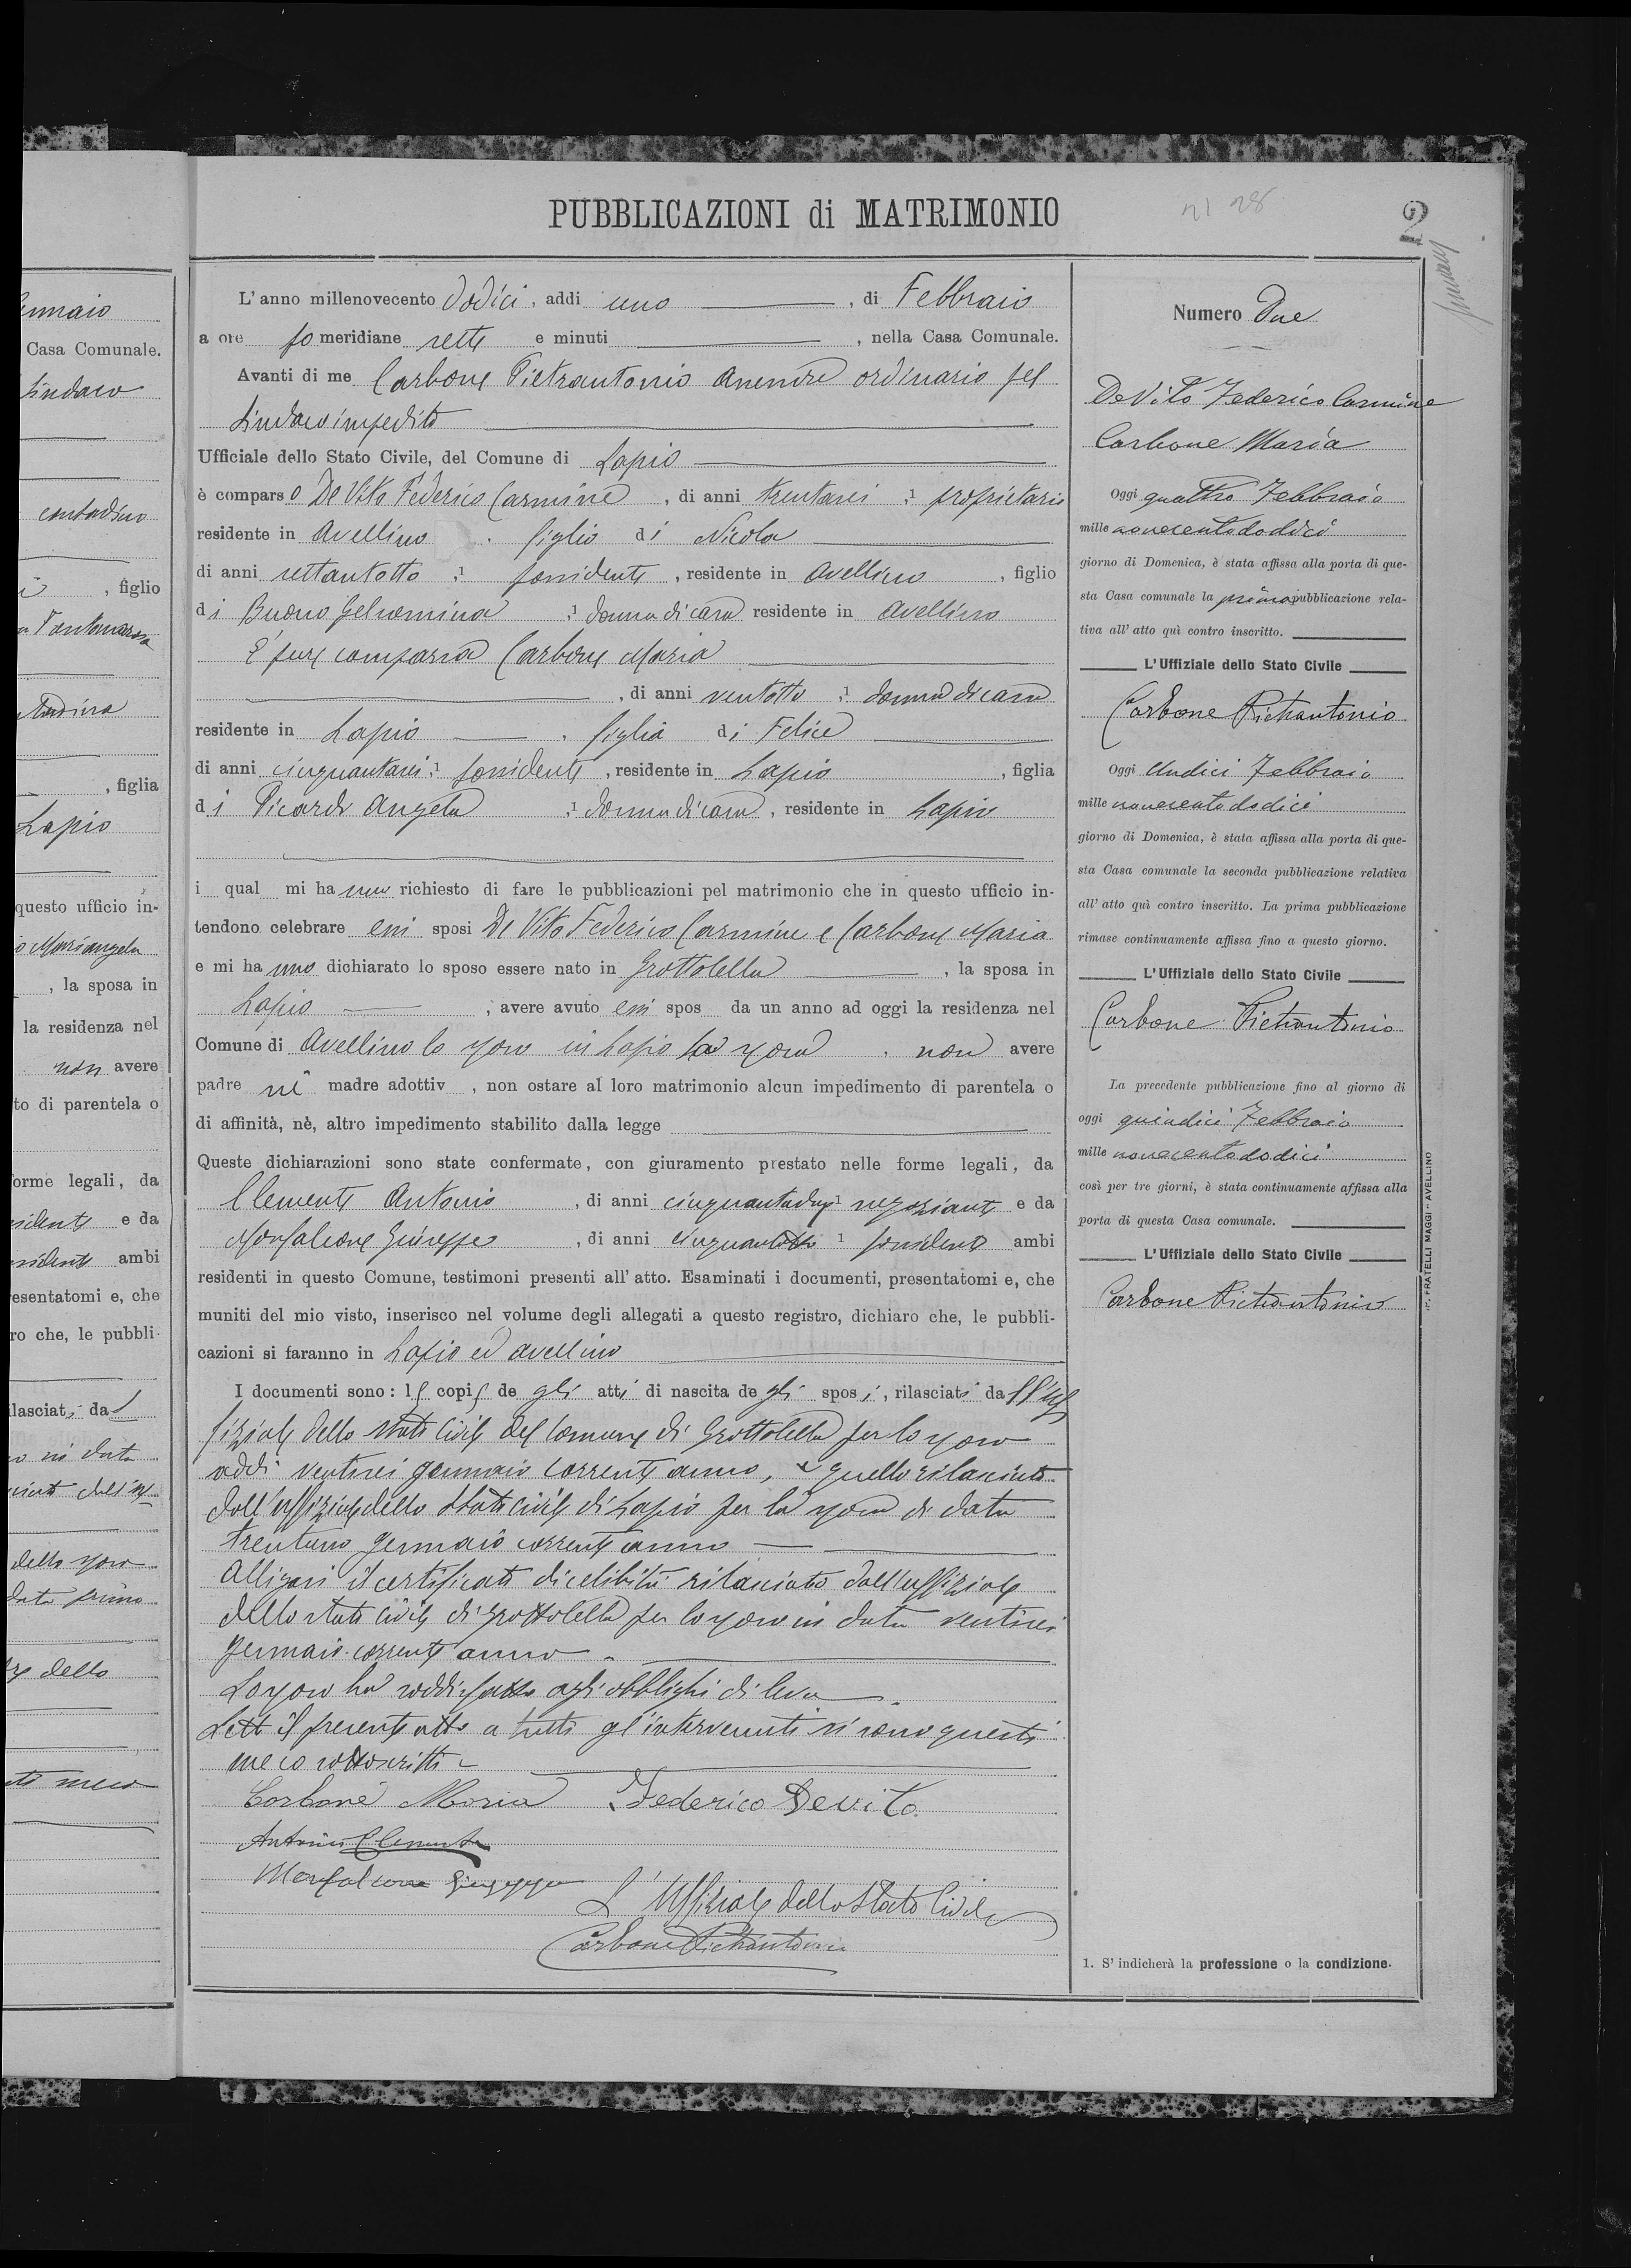 PUBBLICAZIONI di MATRIMONIO
21 28
2
L'anno millenovecento dodici, addi uno, di Febbraio
a ore po meridiane sette e minuti, nella Casa Comunale.
Avanti di me Carbone Pietrantonio assessore ordinario pel
Sindaco impedito
Ufficiale dello Stato Civile, del Comune di Lapio
è comparso De Vito Federico Carmine, di anni trentasei, 1 proprietario
residente in Avellino, figlio di Nicola
di anni settantotto, 1 possidente, residente in Avellino, figlio
di Buono Gelsomina, 1 donna di casa residente in Avellino
È pure comparsa Carbone Maria
, di anni ventotto, 1 donna di casa
residente in Lapio, figlia di Felice
di anni cinquantasei, 1 possidente, residente in Lapio, figlia
di Picardi Angela, 1 donna di casa, residente in Lapio
i qual mi hanno richiesto di fare le pubblicazioni pel matrimonio che in questo ufficio in-
tendono celebrare essi sposi De Vito Federico Carmine e Carbone Maria
e mi hanno dichiarato lo sposo essere nato in Grottolella, la sposa in
Lapio, avere avuto essi spos da un anno ad oggi la residenza nel
Comune di Avellino lo sposo in Lapio la sposa, non avere
padre nè madre adottiv, non ostare al loro matrimonio alcun impedimento di parentela o
di affinità, nè, altro impedimento stabilito dalla legge
Queste dichiarazioni sono state confermate, con giuramento prestato nelle forme legali, da
Clemente Antonio, di anni cinquantadue 1 negoziante e da
Monfalcone Giuseppe, di anni cinquantotto 1 possidente ambi
residenti in questo Comune, testimoni presenti all'atto. Esaminati i documenti, presentatomi e, che
muniti del mio visto, inserisco nel volume degli allegati a questo registro, dichiaro che, le pubbli-
cazioni si faranno in Lapio ed Avellino
I documenti sono: le copie degli atti di nascita degli sposi, rilasciati dall'uf
fiziale dello Stato Civile del Comune di Grottolella per lo sposo
addi ventisei gennaio corrente anno, e quello rilasciato
dall'uffiziale dello Stato Civile di Lapio per la sposa di data
trentuno gennaio corrente anno
Alligasi il certificato di celibità rilasciato dall'uffiziale
dello Stato Civile di Grottolella per lo sposo in data ventisei
gennaio corrente anno.
Lo sposo ha soddisfatto agli obblighi di leva.
Letto il presente atto a tutti gl'intervenuti si sono questi
meco sottoscritti
Carbone Maria Federico Devito
Antonio Clemente
Monfalcone Giuseppe
L'Uffiziale dello Stato Civile
Carbone Pietrantonio
Numero Due
De Vito Federico Carmine
Carbone Maria
Oggi quattro Febbraio
mille novecentododici
giorno di Domenica, è stata affissa alla porta di que-
sta Casa comunale la prima pubblicazione rela-
tiva all'atto quì contro inscritto.
L'Uffiziale dello Stato Civile
Carbone Pietrantonio
Oggi Undici Febbraio
mille novecentododici
giorno di Domenica, è stata affissa alla porta di que-
sta Casa comunale la seconda pubblicazione relativa
all'atto quì contro inscritto. La prima pubblicazione
rimase continuamente affissa fino a questo giorno.
L'Uffiziale dello Stato Civile
Carbone Pietrantonio
La precedente pubblicazione fino al giorno di
oggi quindici Febbraio
mille novecentododici
così per tre giorni, è stata continuamente affissa alla
porta di questa Casa comunale.
L'Uffiziale dello Stato Civile
Carbone Pietrantonio
1. S'indicherà la professione o la condizione.
FRATELLI MAGGI - AVELLINO
ennaio
Casa Comunale.
Sindaco
contadino
, figlio
Fontanarosa
, figlia
Lapio
questo ufficio in-
Mariangela
, la sposa in
la residenza nel
non avere
to di parentela o
orme legali, da
sidente e da
ssidente ambi
esentatomi e, che
ro che, le pubbli-
ilasciat, da
in data
dello sposo
data primo
dello
meco